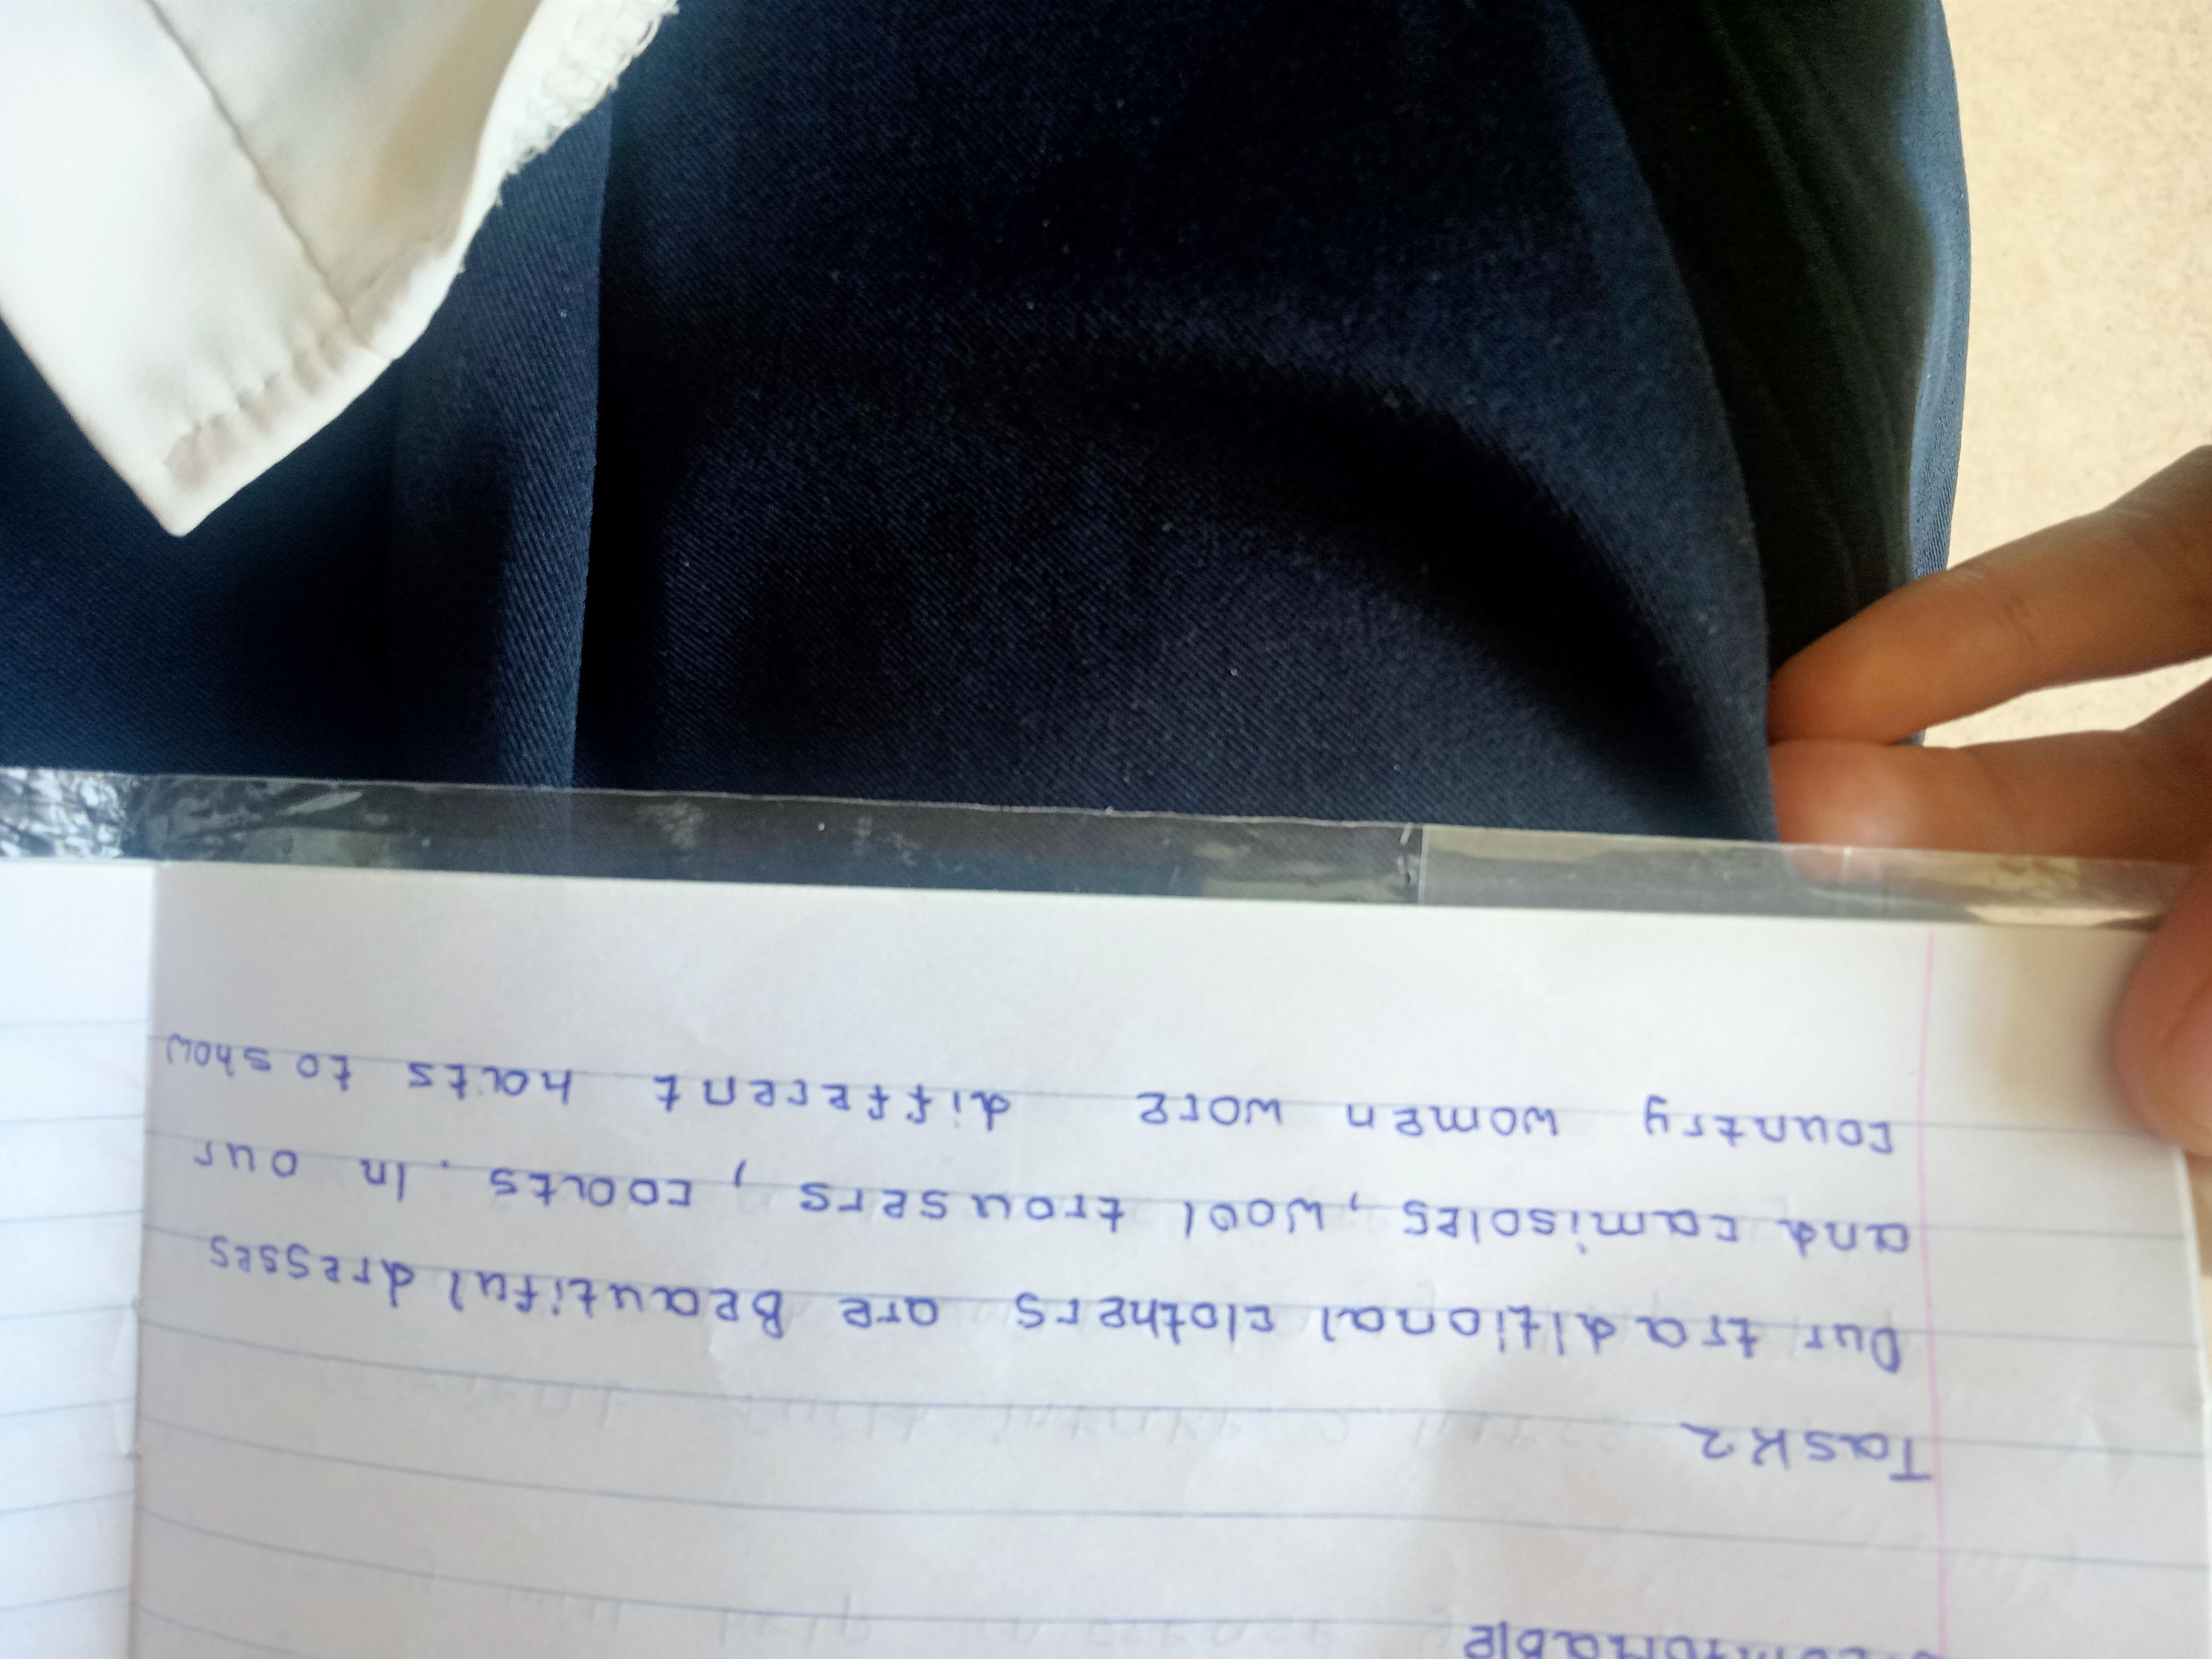 comfortable
Task 2
Our traditional clothers are Beautiful dresses
and camisoles, wool trousers, coats. In our
country women wore different hats to show